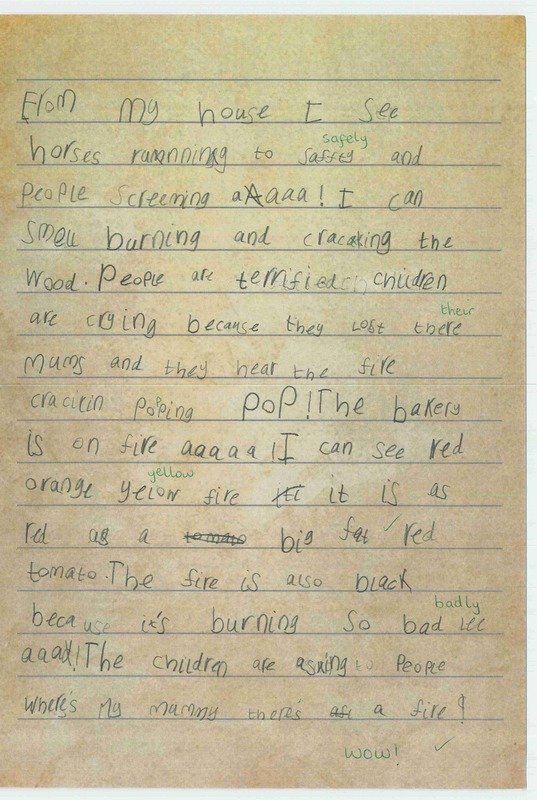 From my house I see
safely
horses runnning to saffty and
people screeming aAaaa! I can
smell burning and cracaking the
wood. People are terrified children
their
are crying because they lost there
mums and they hear the fire
crackin poping POP! The bakery
is on fire aaaaa! I can see red
yellow
orange yelow fire it is as
red as a tomato big fat ✓ red
tomato. The fire is also black
badly
because it's burning so bad lee
aaaa! The children are asking to People
Where's My mammy there's a fire!
wow! ✓